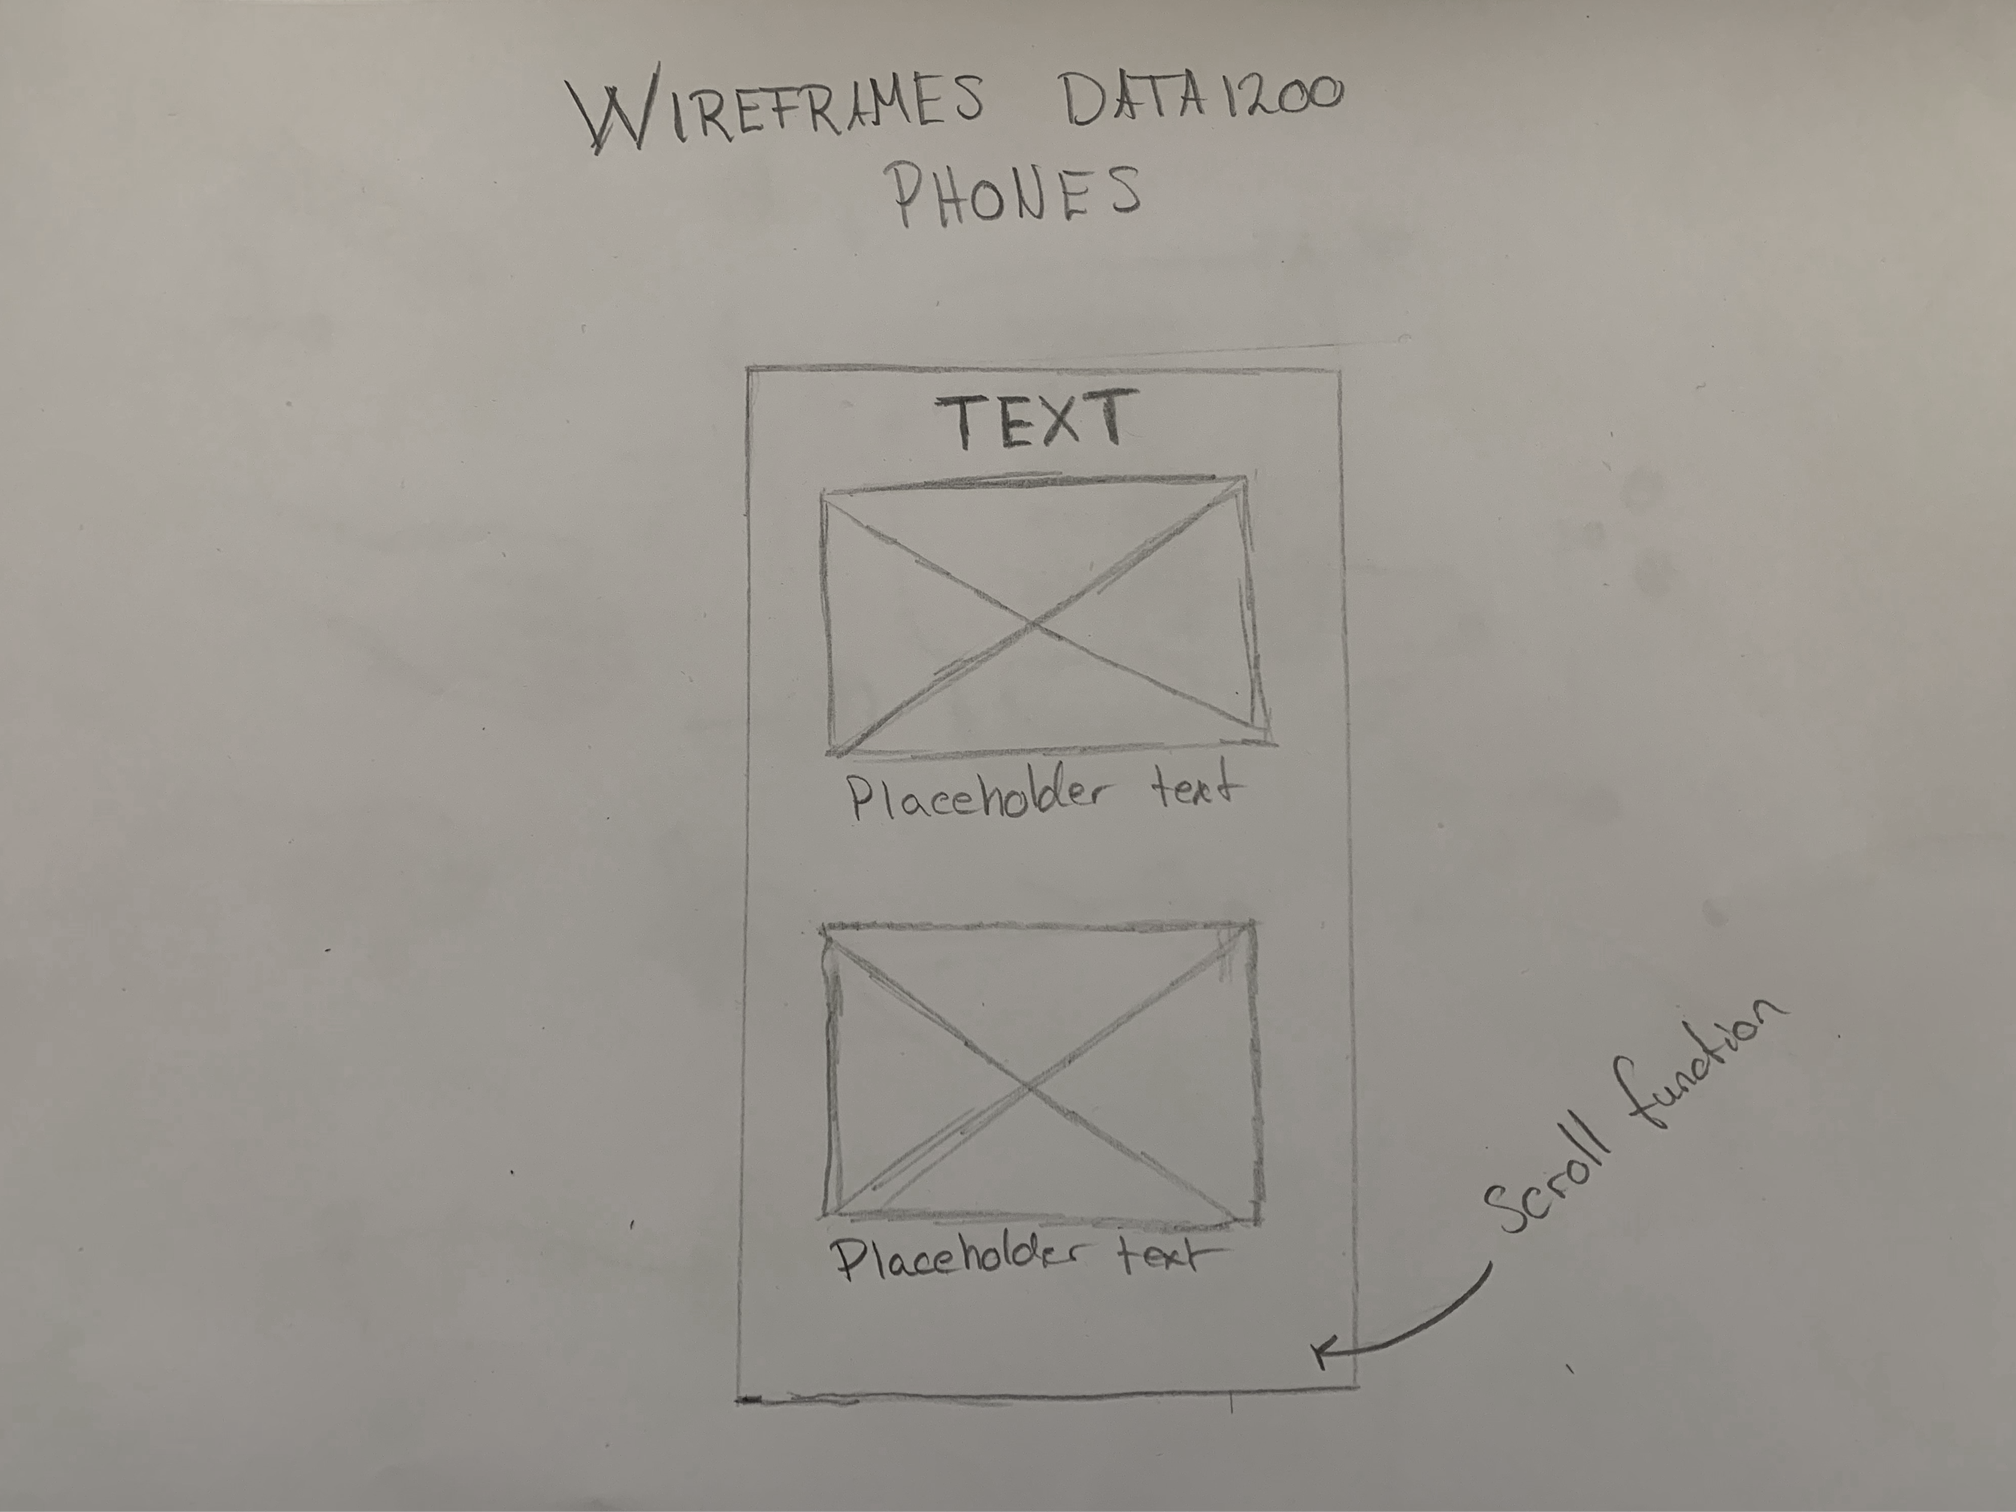 WIREFRAMES DATA1200
PHONES
TEXT
Placeholder text
Placeholder text
Scroll function